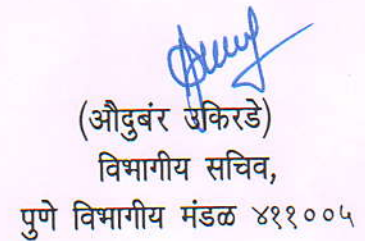 (औदुबंर उकिरडे)
विभागीय सचिव,
पुणे विभागीय मंडळ ४११००५